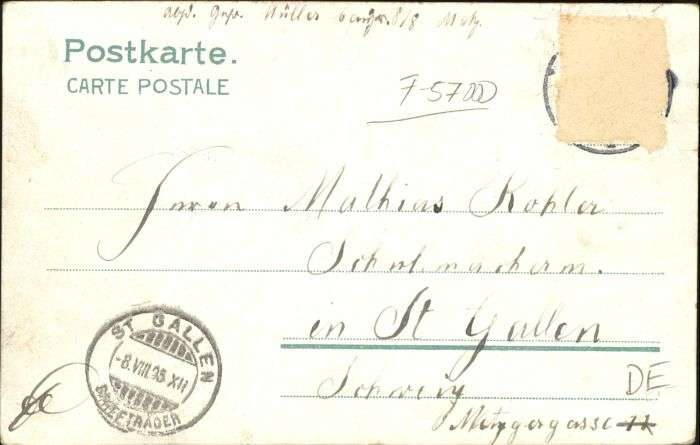 Müller Metz.
Postkarte.
CARTE POSTALE
F-57000
Herrn Mathias Kohler
Schuhmacherm.
in St Gallen
Schweiz
DE
Metzgergasse 11
ST. GALLEN
-8.VIII.98.XII
BRIEFTRÄGER